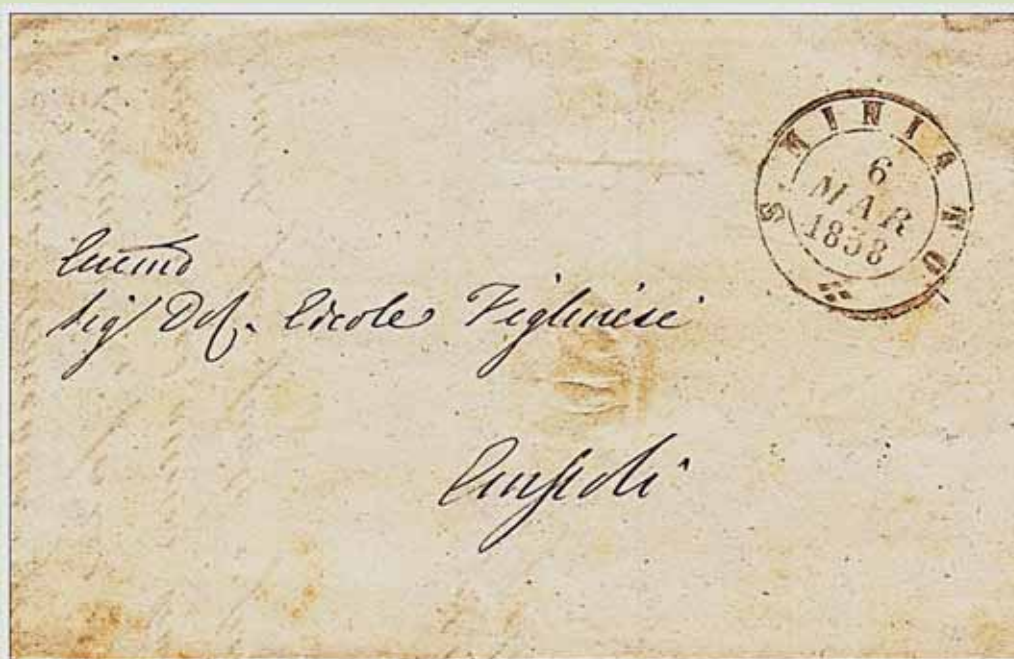 S. MINIATO
6
MAR
1858
Eccmo
Sig/ Dot. Ercole Figlinesi
Empoli